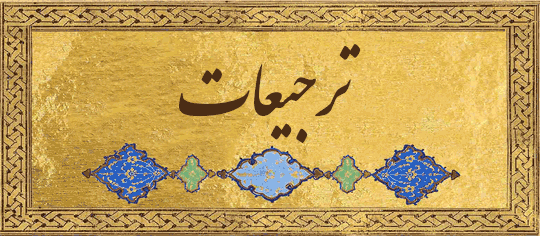 ترجیعات